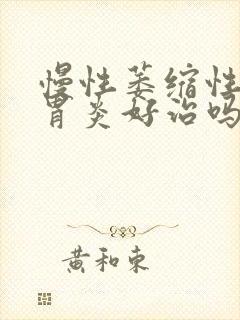 慢性萎缩性
胃炎好治吗
黄和东